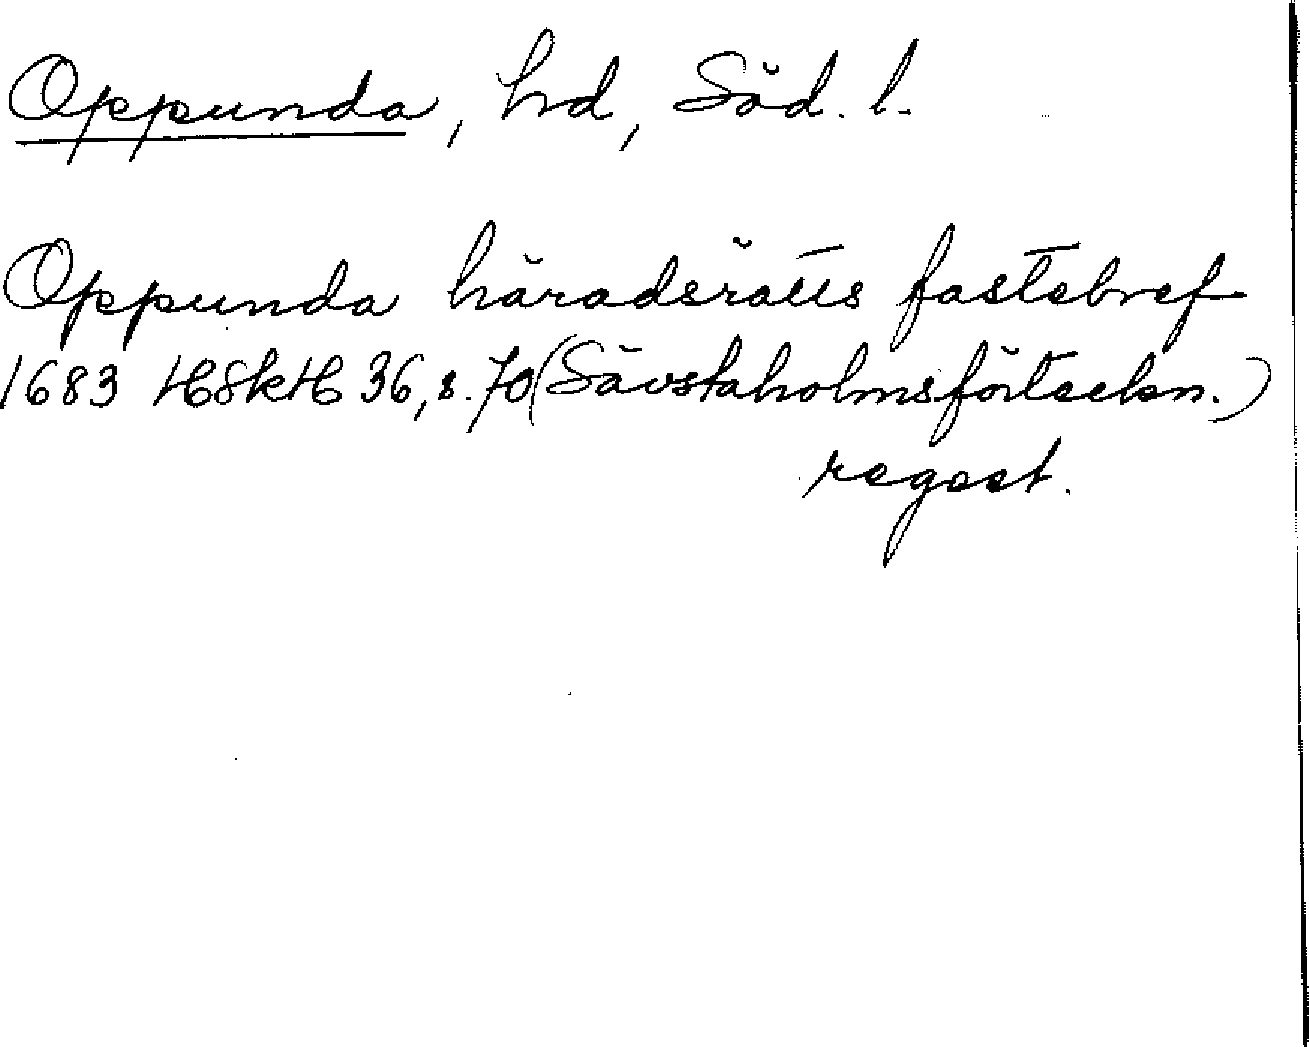 Oppunda, hd, Söd. l.
Oppunda häradsrätts fastebref
1683 HSkH 36, s. 70 (Sävstaholmsförteckn.)
regest.